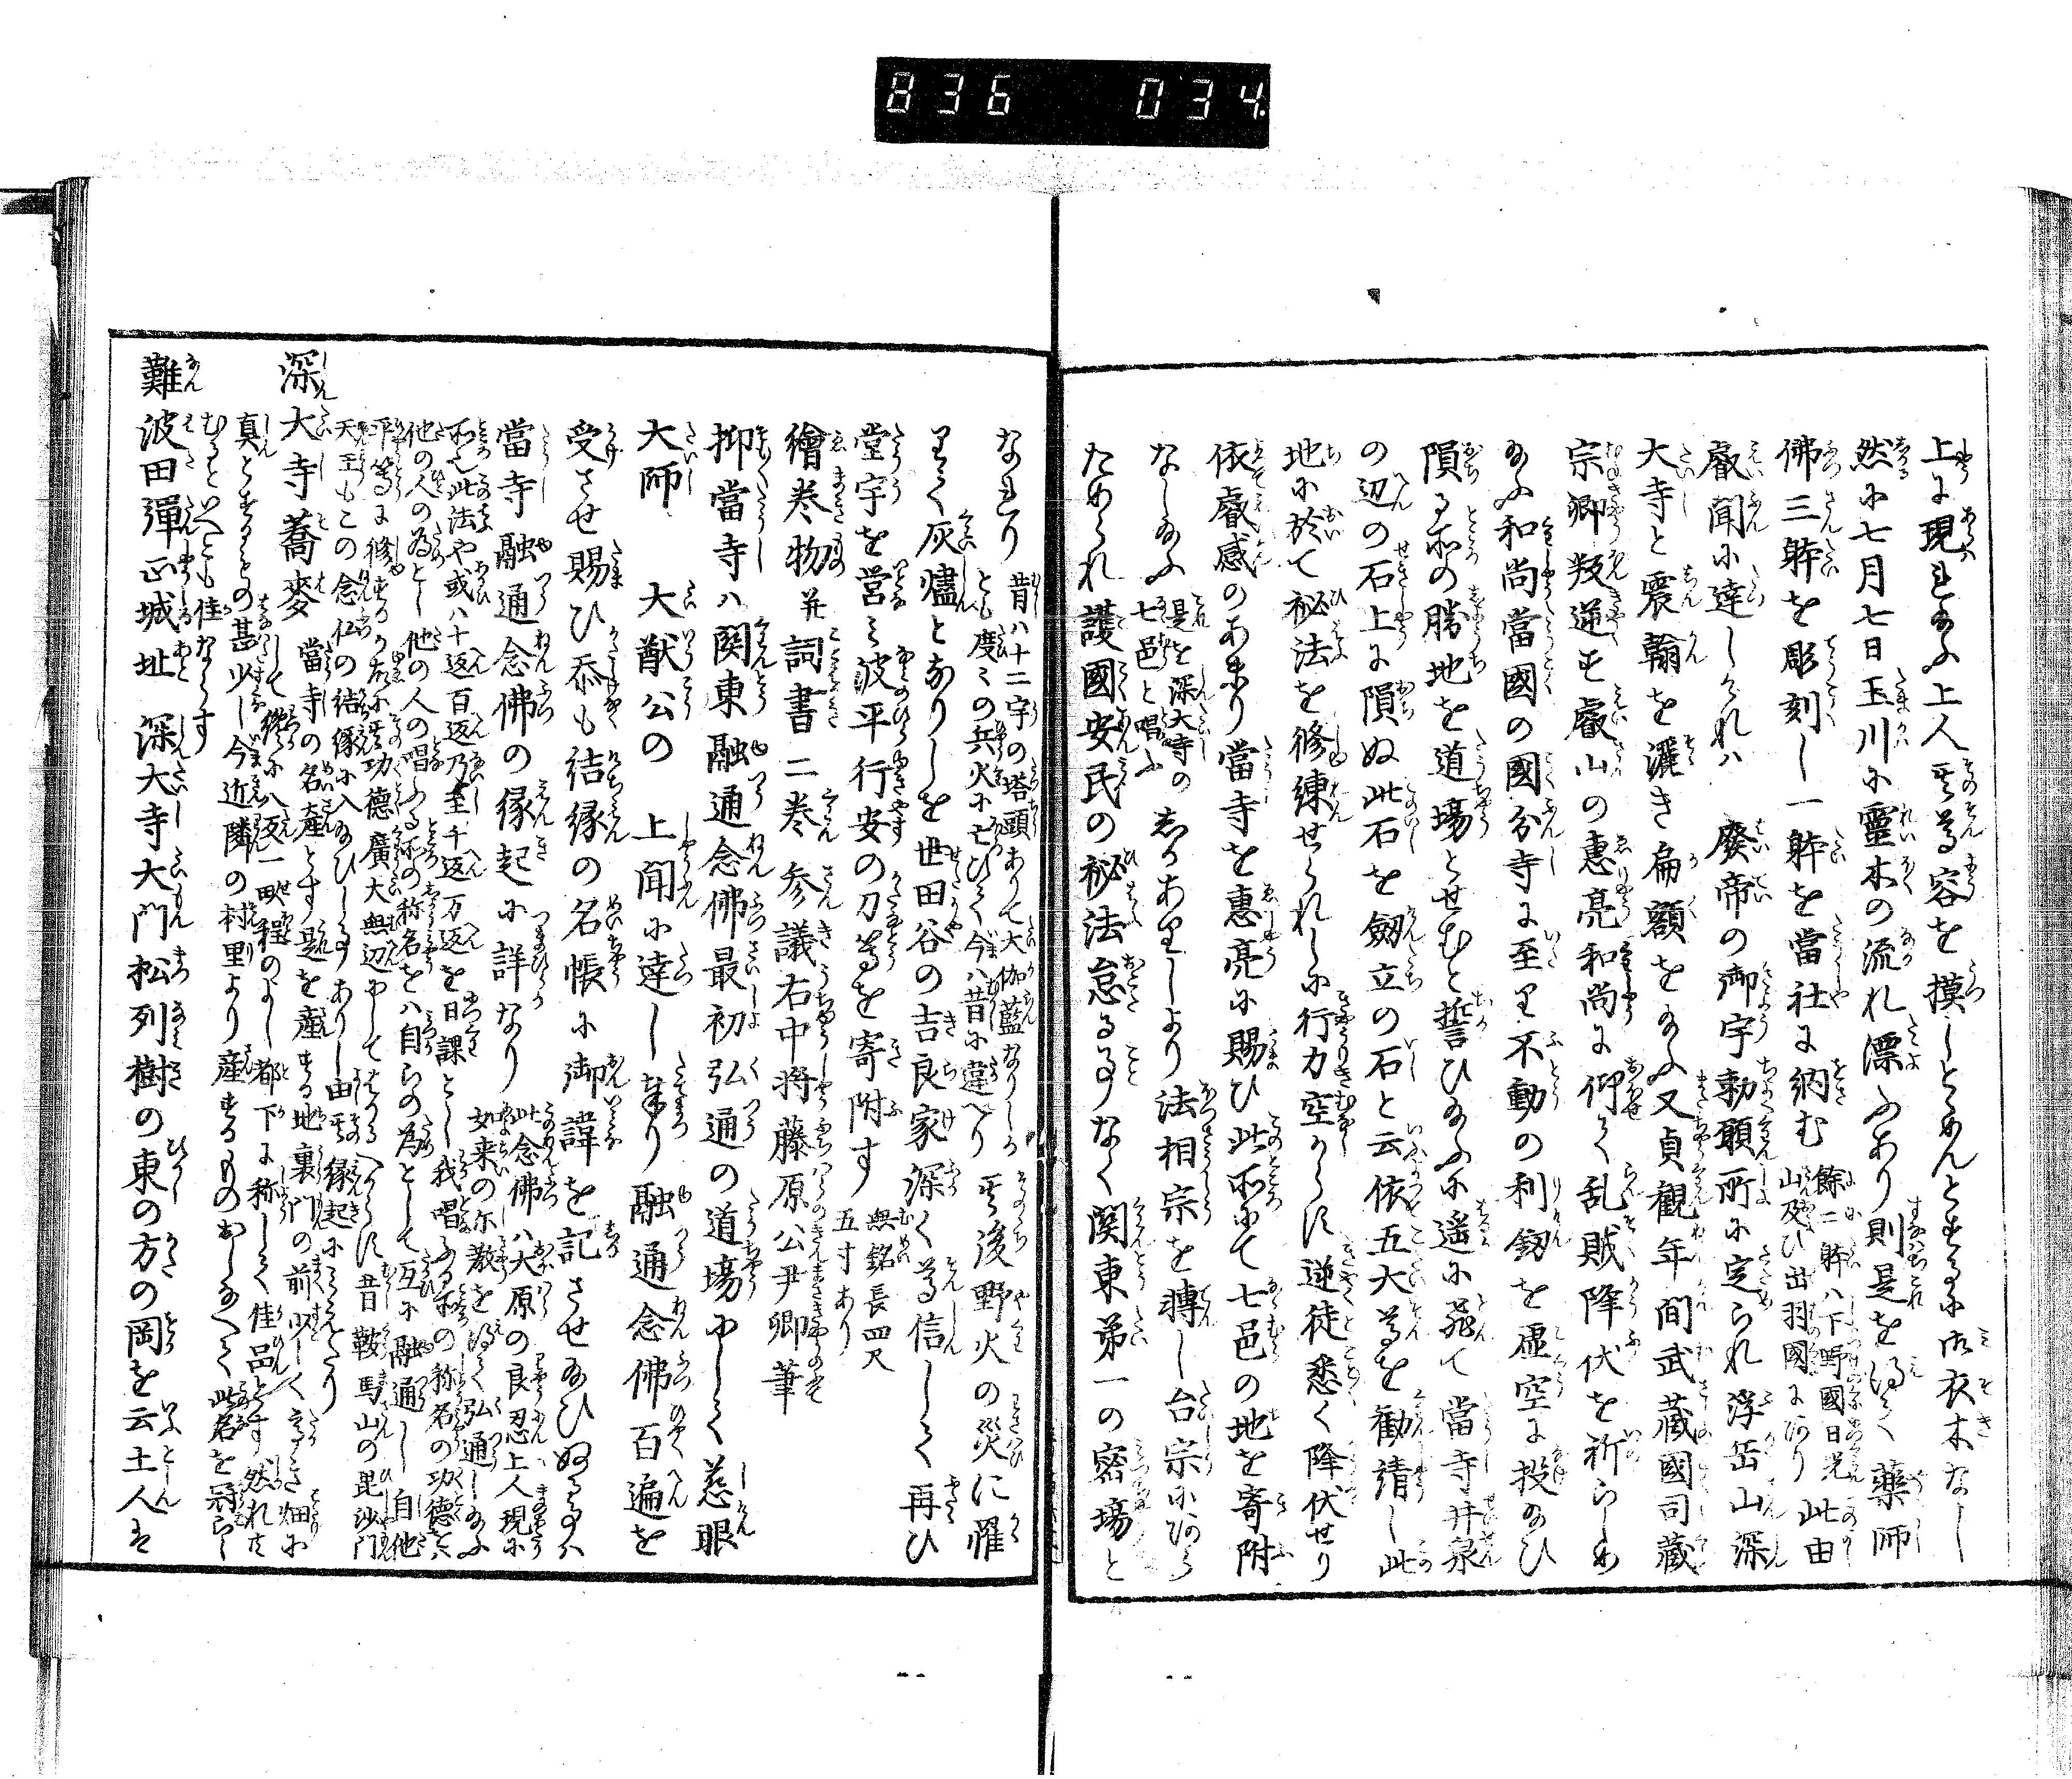 836 034
上に現れ給ふ上人其尊容を摸しとめんとするに御衣木なし
然に七月七日玉川に霊木の流れ漂ふあり則是を得て薬師
佛三躰を彫刻し一躰を當社に納む餘二躰ハ下野國日光
山及ひ出羽國にあり此由
叡聞に達しけれハ 廢帝の御宇勅願所に定られ浮岳山深
大寺と震翰を灑き扁額を給ふ又貞観年間武蔵國司蔵
宗卿叛逆す叡山の惠亮和尚に仰て乱賊降伏を祈らしめ
給ふ和尚當國の國分寺に至り不動の利劔を虚空に投給ひ
隕る所の勝地を道場とせむと誓ひ給ふに遥に飛て當寺井泉
の辺の石上に隕ぬ此石を劔立の石と云依五大尊を勧請し此
地に於て秘法を修練せられしに行力空からす逆徒悉く降伏せり
依叡感のあまり當寺を惠亮に賜ひ此所にて七邑の地を寄附
なし給ふ是を深大寺の
七邑と唱ふしかありしより法相宗を轉し台宗にあら
ためられ護國安民の秘法怠る事なく関東第一の密場と
なれり昔ハ十二宇の塔頭ありて大伽藍なりしか
とも度々の兵火に亡ひて今ハ昔に違へり其後野火の災に罹
りて灰燼となりしを世田谷の吉良家深く尊信して再ひ
堂宇を営み波平行安の刀等を寄附す無銘長四尺
五寸あり
繪巻物并詞書二巻 参議右中将藤原公尹卿筆
抑當寺ハ関東融通念佛最初弘通の道場にして慈眼
大師 大猷公の 上聞に達し奉り融通念佛百遍を
受させ賜ひ忝も結縁の名帳に御諱を記させ給ひぬる事ハ
當寺融通念佛の縁起に詳なり此念佛ハ大原の良忍上人現に
如来の示教を得て弘通し給ふ
所也此法や或ハ十返百返乃至千返万返を日課とし我唱ふる所の称名の功徳を
他の人の為とし他の人の唱ふる所の称名をハ自らの為として互に融通し自他
平等に修するか故に其功徳廣大無辺にしてはかるへからす昔鞍馬山の毘沙門
天王もこの念仏の結縁に入給ひし事ありし由其縁起にみえたり
深大寺蕎麥 當寺の名産とす是を産する地裏門の前少しく高き畑に
して纔に八反一畝程のよし都下に称して佳品とす然れとも
真とするもの甚少し今近隣の村里より産するものおしなへて此名を冠らし
むるといへとも佳ならす
難波田彈正城址 深大寺大門松列樹の東の方の岡を云土人は